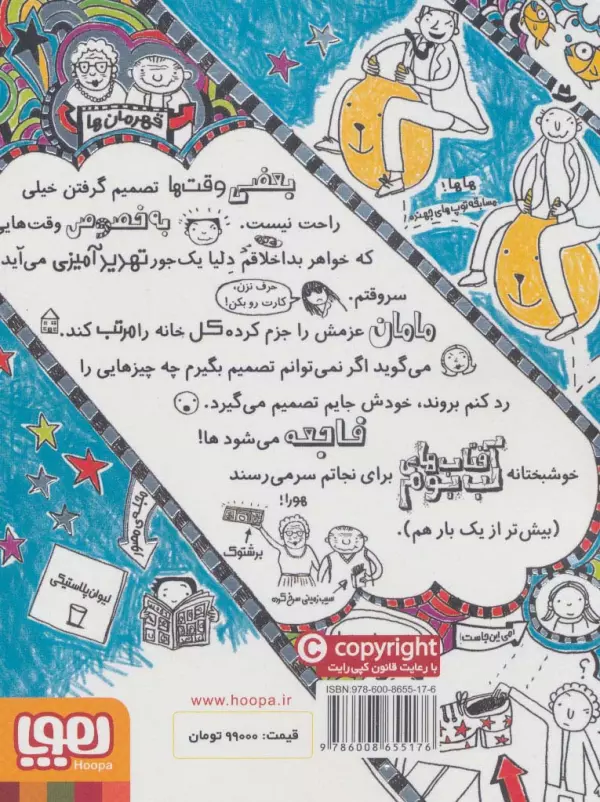 قهرمان‌ها
هاها!
مسابقه توپ‌های جهنده!
بعضی وقت‌ها تصمیم گرفتن خیلی
راحت نیست. به‌خصوص وقت‌هایی
که خواهر بداخلاقم دلیا یک‌جور تهدیدآمیزی می‌آید
سروقتم.
حرف نزن،
کارت رو بکن!
مامان عزمش را جزم کرده کل خانه را مرتب کند.
می‌گوید اگر نمی‌توانم تصمیم بگیرم چه چیزهایی را
رد کنم بروند، خودش جایم تصمیم می‌گیرد.
فاجعه می‌شود ها!
خوشبختانه آفتاب‌های لب بوم برای نجاتم سر می‌رسند
(بیش‌تر از یک بار هم).
هورا!
برشتوک
سیب‌زمینی سرخ‌کرده
مجله‌ی مصور
لیوان پلاستیکی
این‌جاست!
copyright
با رعایت قانون کپی‌رایت
ISBN: 978-600-8655-17-6
9 786008 655176
www.hoopa.ir
قیمت: ۹۹۰۰۰ تومان
هوپا
Hoopa